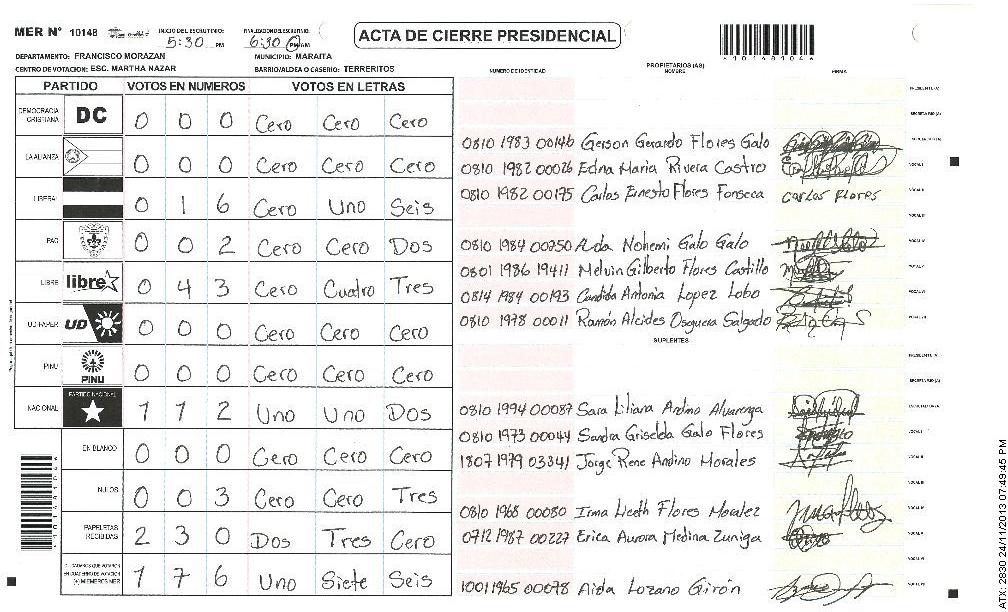 MER N° 10148 INICIO DEL ESCRUTINIO: 5:30 PM FINALIZACION DEL ESCRUTINIO: 6:30 PM/AM
ACTA DE CIERRE PRESIDENCIAL
*10148104*
DEPARTAMENTO: FRANCISCO MORAZAN MUNICIPIO: MARAITA
CENTRO DE VOTACION: ESC. MARTHA NAZAR BARRIO/ALDEA O CASERIO: TERRERITOS
PARTIDO VOTOS EN NUMEROS VOTOS EN LETRAS
DEMOCRACIA CRISTIANA DC 0 0 0 Cero Cero Cero
LA ALIANZA 0 0 0 Cero Cero Cero
LIBERAL 0 1 6 Cero Uno Seis
PAC 0 0 2 Cero Cero Dos
LIBRE libre 0 4 3 Cero Cuatro Tres
UD FAPER UD 0 0 0 Cero Cero Cero
PINU PINU 0 0 0 Cero Cero Cero
NACIONAL PARTIDO NACIONAL 1 1 2 Uno Uno Dos
EN BLANCO 0 0 0 Cero Cero Cero
NULOS 0 0 3 Cero Cero Tres
PAPELETAS RECIBIDAS 2 3 0 Dos Tres Cero
CIUDADANOS QUE VOTARON
EN CUADERNO DE VOTACION
(+) MIEMBROS MER 1 7 6 Uno Siete Seis
NUMERO DE IDENTIDAD PROPIETARIOS (AS) NOMBRE FIRMA
PRESIDENTE (A)
SECRETARIO (A)
0810 1983 00146 Gerson Gerardo Flores Galo ESCRUTADOR (A)
0810 1982 00026 Edna Maria Rivera Castro VOCAL I
0810 1982 00175 Carlos Ernesto Flores Fonseca Carlos Flores VOCAL II
VOCAL III
0810 1984 00250 Alda Nohemi Galo Galo VOCAL IV
0801 1986 19411 Melvin Gilberto Flores Castillo VOCAL V
0814 1984 00193 Candida Antonia Lopez Lobo VOCAL VI
0810 1978 00011 Ramón Alcides Oseguera Salgado VOCAL VII
SUPLENTES
PRESIDENTE (A)
SECRETARIO (A)
0810 1994 00087 Sara Liliana Andino Alvarenga ESCRUTADOR (A)
0810 1973 00044 Sandra Griselda Galo Flores VOCAL I
1807 1979 03341 Jorge Rene Andino Morales VOCAL II
VOCAL III
0810 1968 00080 Irma Liceth Flores VOCAL IV
0712 1987 00227 Erica Aurora Medina Zuniga VOCAL V
VOCAL VI
1001 1965 00078 Aida Lozano Girón VOCAL VII
ATX-2930 24/11/2013 07:49:45 PM